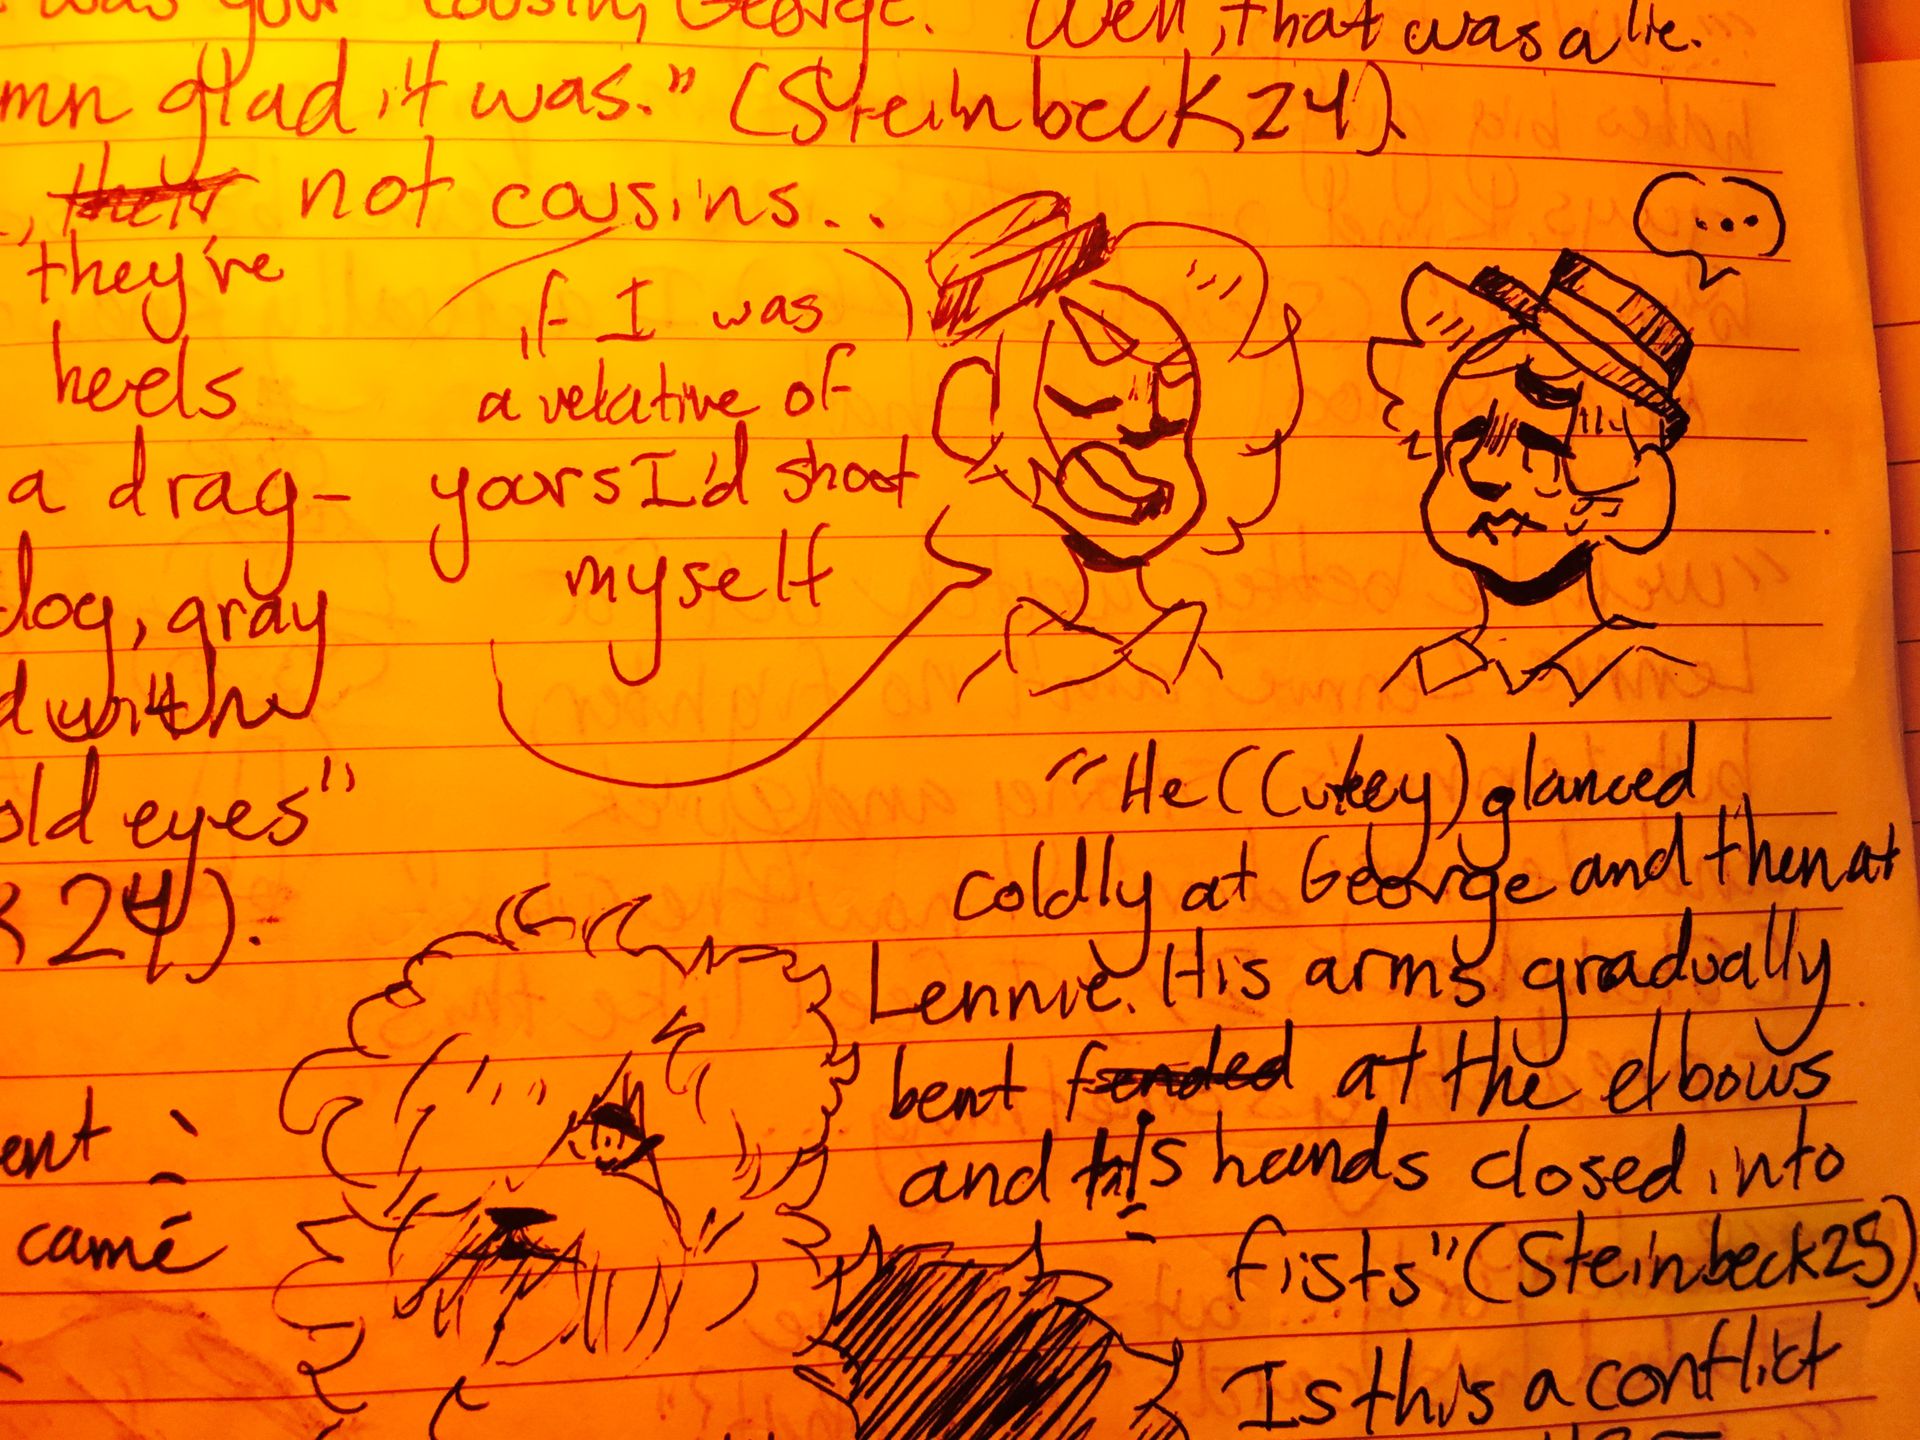 was your cousin, George." Well, that was a lie.
mn glad it was." (Steinbeck, 24).
, their not cousins...
they're
heels
a drag-
dog, gray
d with
old eyes"
K 24).
if I was
a relative of
yours I'd shoot
myself
...
"He (Curley) glanced
coldly at George and then at
Lennie. His arms gradually
bent fended at the elbows
and his hands closed into
fists" (Steinbeck 25).
Is this a conflict
ent
came